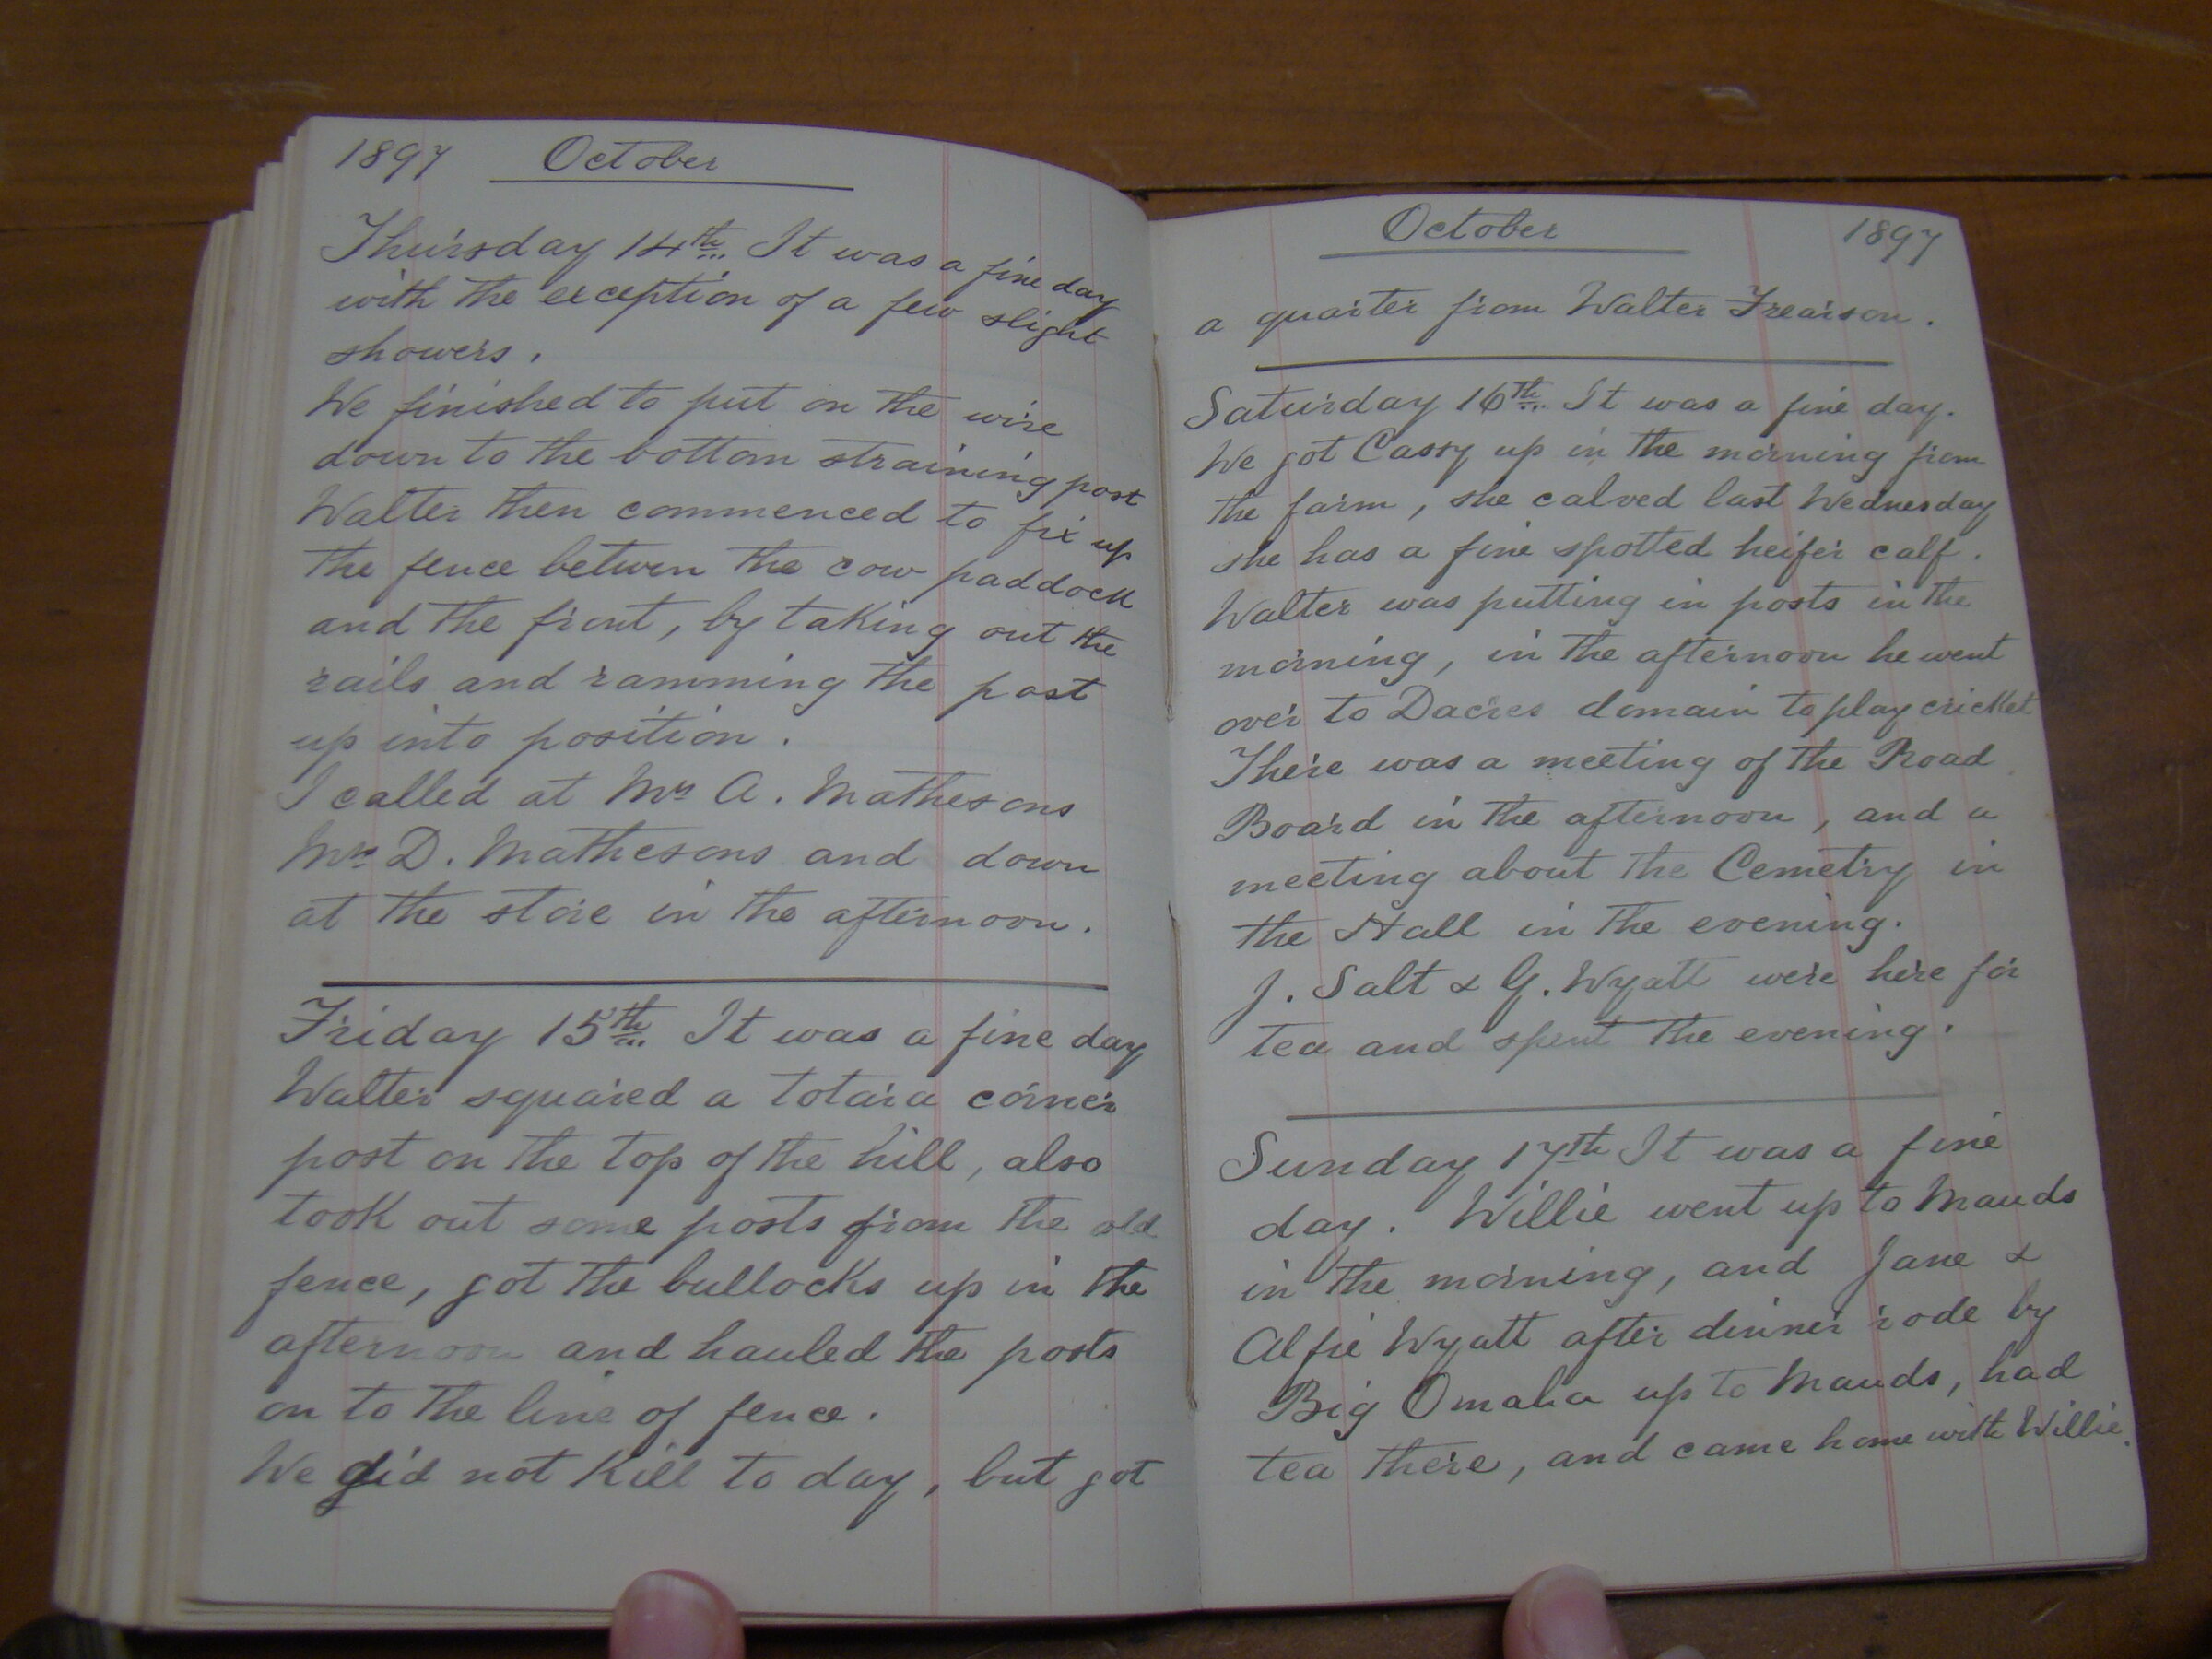 1897 October
Thursday 14th It was a fine day
with the exception of a few slight
showers.
We finished to put on the wire
down to the bottom straining post
Walter then commenced to fix up
the fence between the cow paddock
and the front, by taking out the
rails and ramming the post
up into position.
I called at Mrs A. Mathesons
Mrs D. Mathesons and down
at the store in the afternoon.
Friday 15th It was a fine day
Walter squared a totara corner
post on the top of the hill, also
took out some posts from the old
fence, got the bullocks up in the
afternoon and hauled the posts
on to the line of fence.
We did not kill to day, but got
October 1897
a quarter from Walter Frearson.
Saturday 16th It was a fine day.
We got Cassy up in the morning from
the farm, she calved last Wednesday
she has a fine spotted heifer calf.
Walter was putting in posts in the
morning, in the afternoon he went
over to Dacres domain to play cricket
There was a meeting of the Road
Board in the afternoon, and a
meeting about the Cemetry in
the Hall in the evening.
J. Salt & G. Wyatt were here for
tea and spent the evening.
Sunday 17th It was a fine
day. Willie went up to Mauds
in the morning, and Jane &
Alfie Wyatt after dinner rode by
Big Omaha up to Mauds, had
tea there, and came home with Willie.